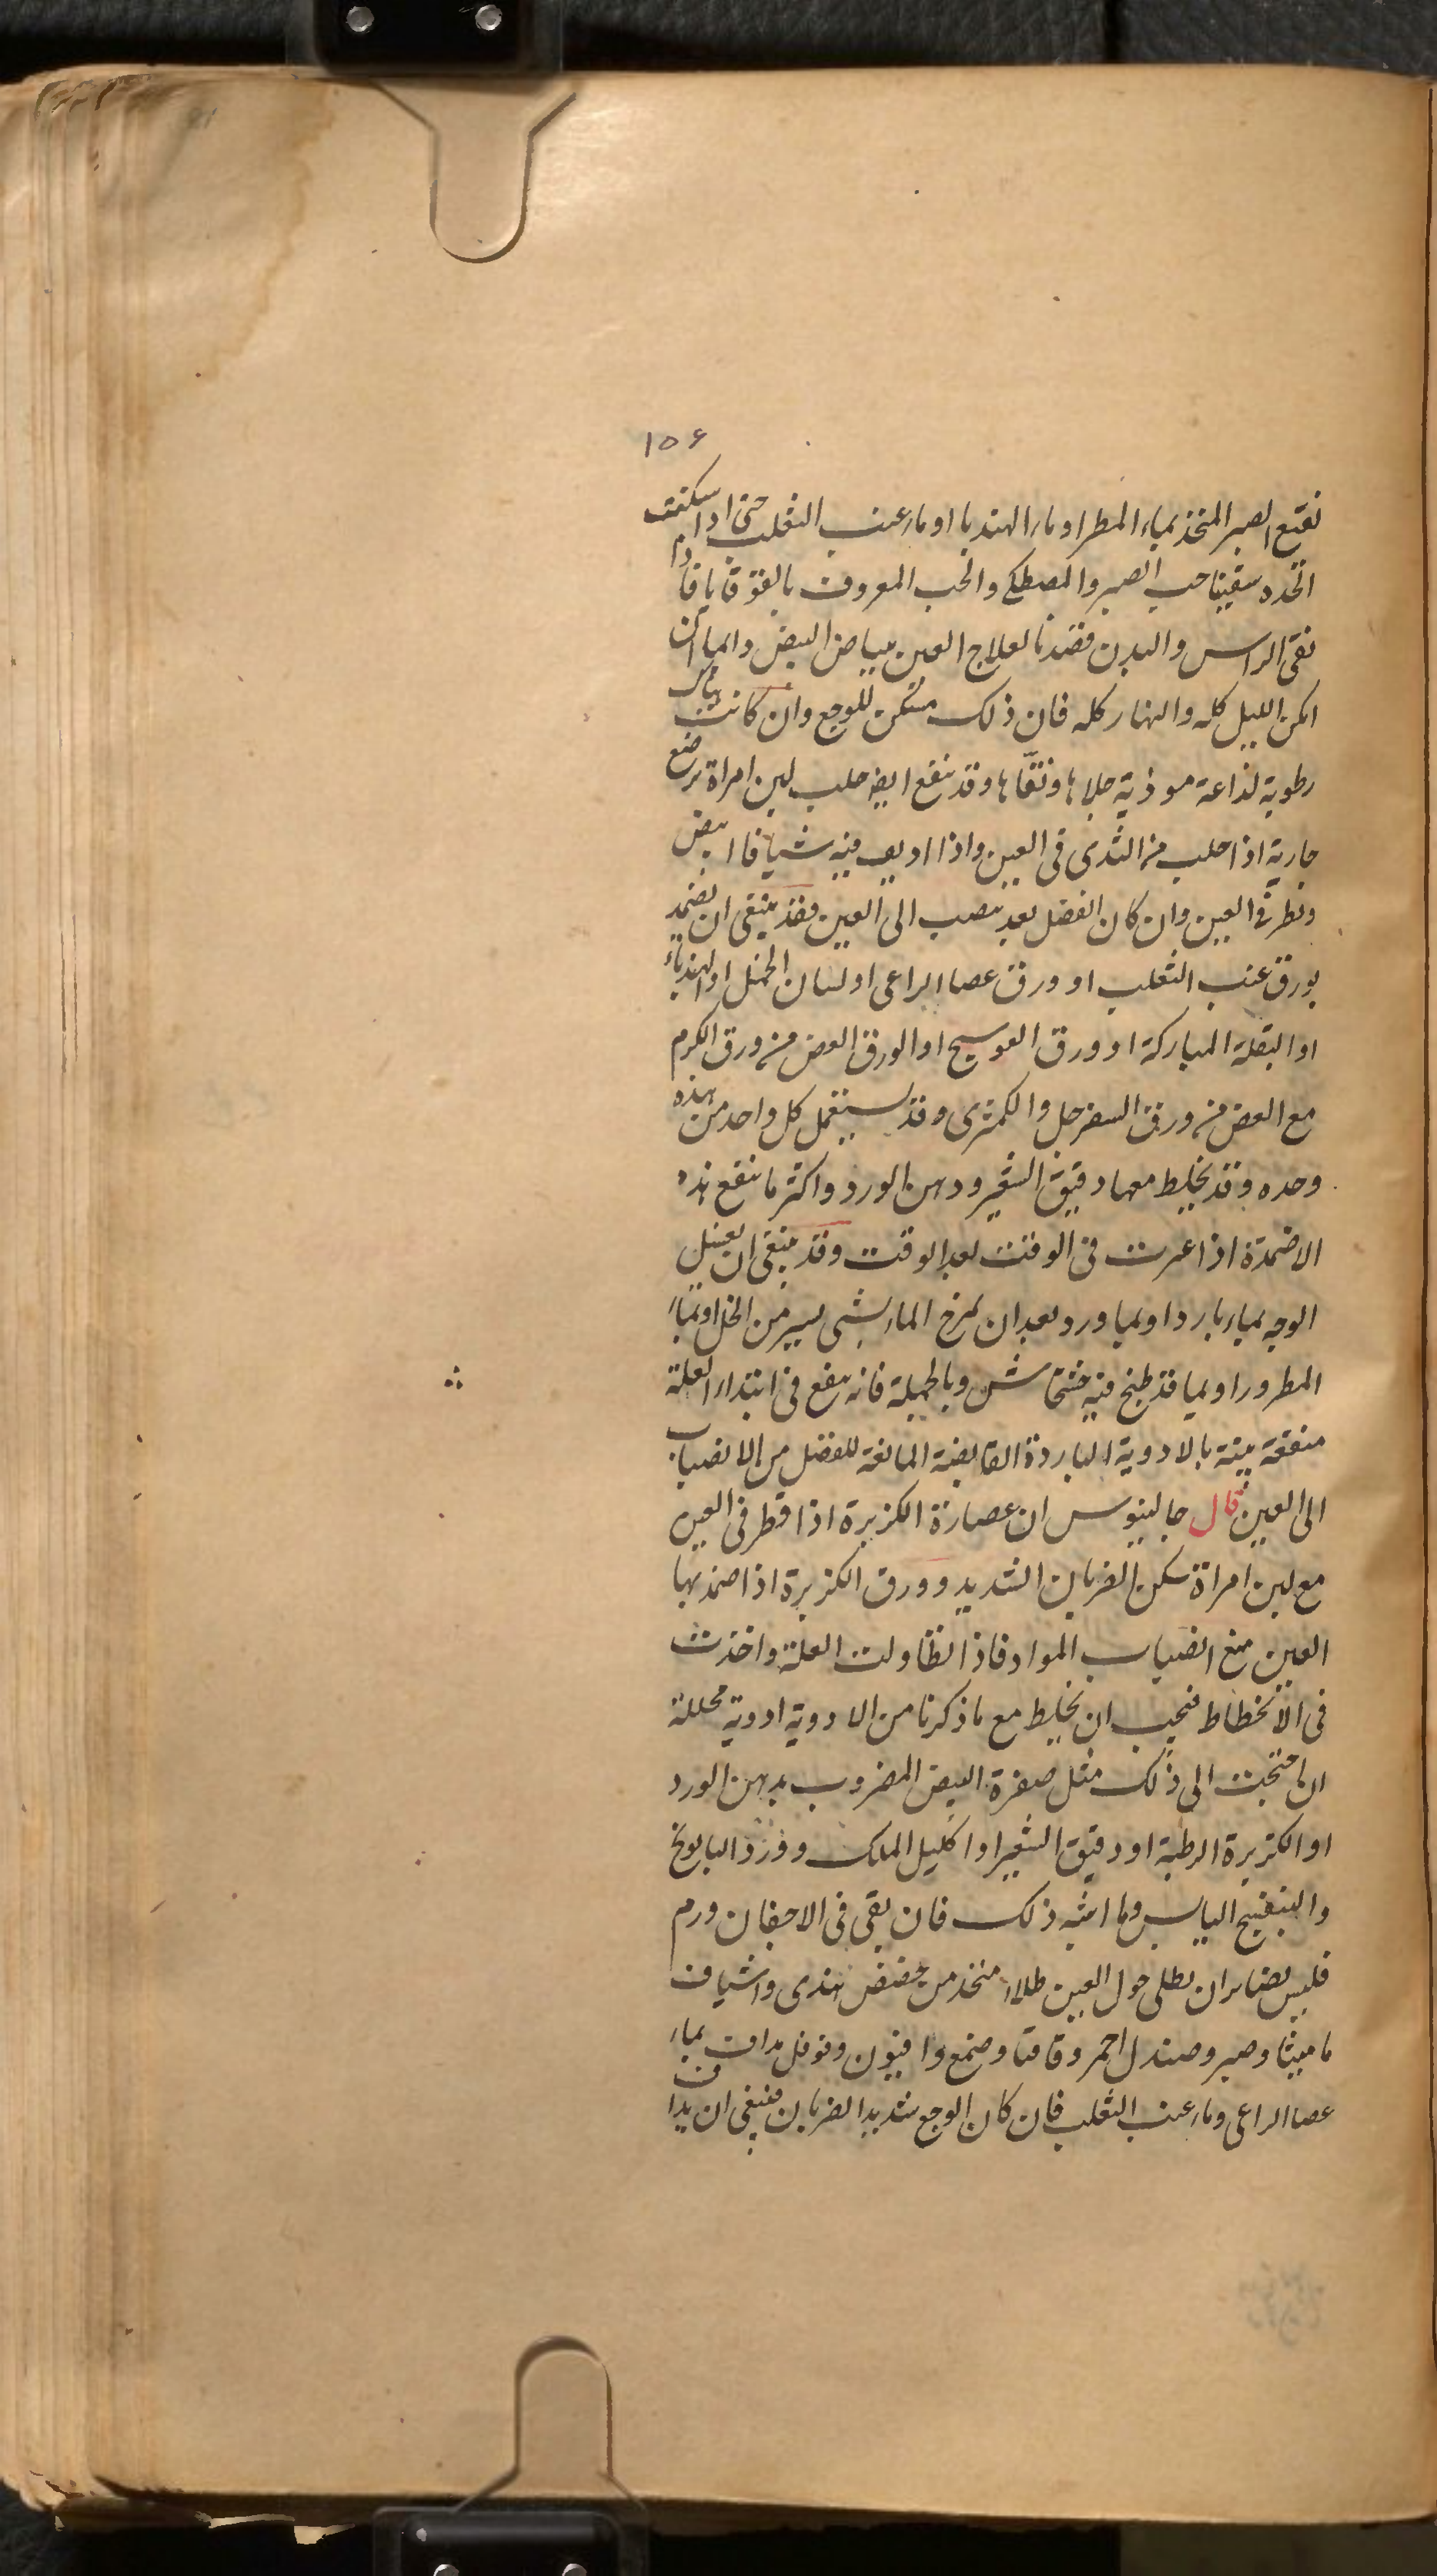 ١٥۶
نقيع الصبر المتخذ بماء المطر او ماء الهندبا او ماء عنب الثعلب حتى اذا سكنت
الحده سقينا حب الصبر والمصطكى والحب المعروف بالقوقايا فاذا
نقى الراس والبدن قصدنا لعلاج العين ببياض البيض والماء ان
امكن الليل كله والنهار كله فان ذلك مسكن للوجع وان كانت هناك
رطوبة لذاعة موذية جلاها ونقّاها وقد ينفع ايضا حلب لبن امراة ترضع
جارية اذا حلب من الثدى فى العين واذا اديف فيه شيافا ابيض
وقطر فى العين وان كان الفضل بعد ينصب الى العين فقد ينبغى ان تضمد
بورق عنب الثعلب او ورق عصا الراعى او لسان الحمل او الهندباء
او البقلة المباركة او ورق العوسج او الورق الغض من ورق الكرم
مع الغض من ورق السفرجل والكمثرى وقد يستعمل كل واحد من هذه
وحده وقد يخلط معها دقيق الشعير ودهن الورد واكثر ما ينفع هذه
الاضمدة اذا غيرت فى الوقت بعد الوقت وقد ينبغى ان يغسل
الوجه بماء بارد او بماورد بعد ان يمزج الماء بشى يسير من الخل او بماء
المطر ورد او بما قد طبخ فيه خشخاش وبالجملة فانه ينفع فى ابتداء العلة
منفعة بينة بالادوية الباردة القابضة المانعة للفضل من الانصباب
الى العين قال جالينوس ان عصارة الكزبرة اذا قطر فى العين
مع لبن امراة سكن الضربان الشديد وورق الكزبرة اذا ضمد بها
العين منع انصباب المواد فاذا تطاولت العلة واخذت
فى الانحطاط فيجب ان يخلط مع ما ذكرنا من الادوية ادوية محللة
ان احتجت الى ذلك مثل صفرة البيض المضروب بدهن الورد
او الكزبرة الرطبة او دقيق الشعير او اكليل الملك وورد البابونج
والبنفسج اليابس وما اشبه ذلك فان بقى فى الاجفان ورم
فليس بضائر ان يطلى حول العين طلاء متخذ من حضض هندى واشياف
ماميثا وصبر وصندل احمر وقاقيا وصمغ وافيون وفوفل مداف بماء
عصا الراعى وماء عنب الثعلب فان كان الوجع شديد الضربان فينبغى ان يداف